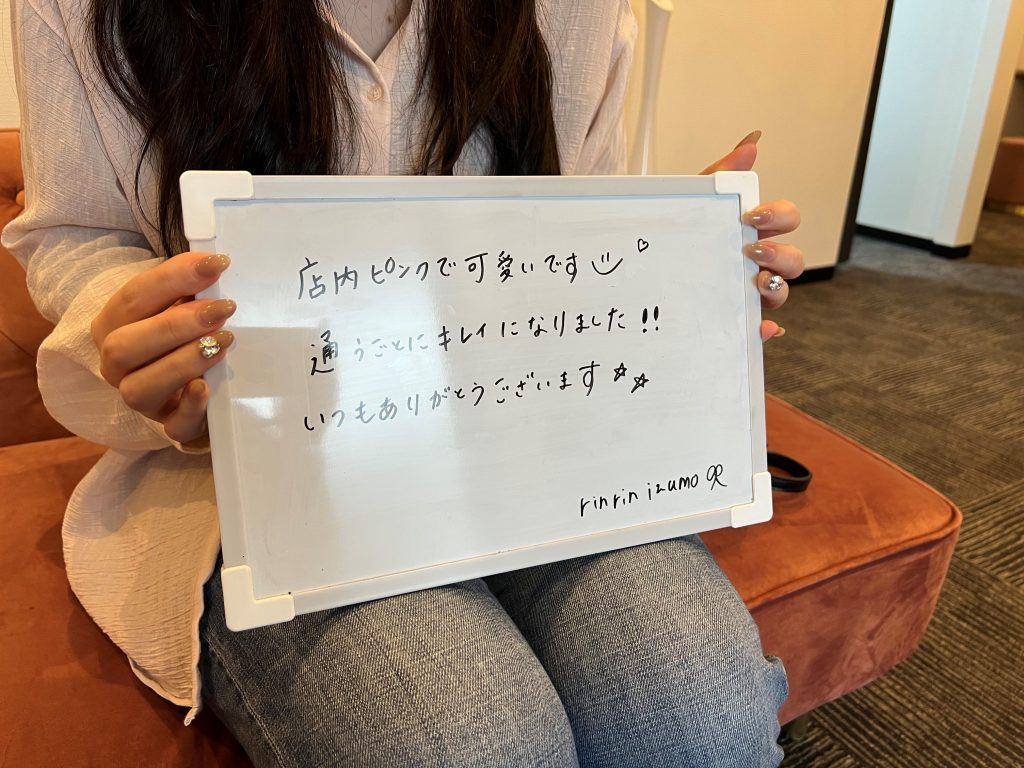 店内ピンクで可愛いです
通うごとにキレイになりました!!
いつもありがとうございます☆☆
rinrin izumo